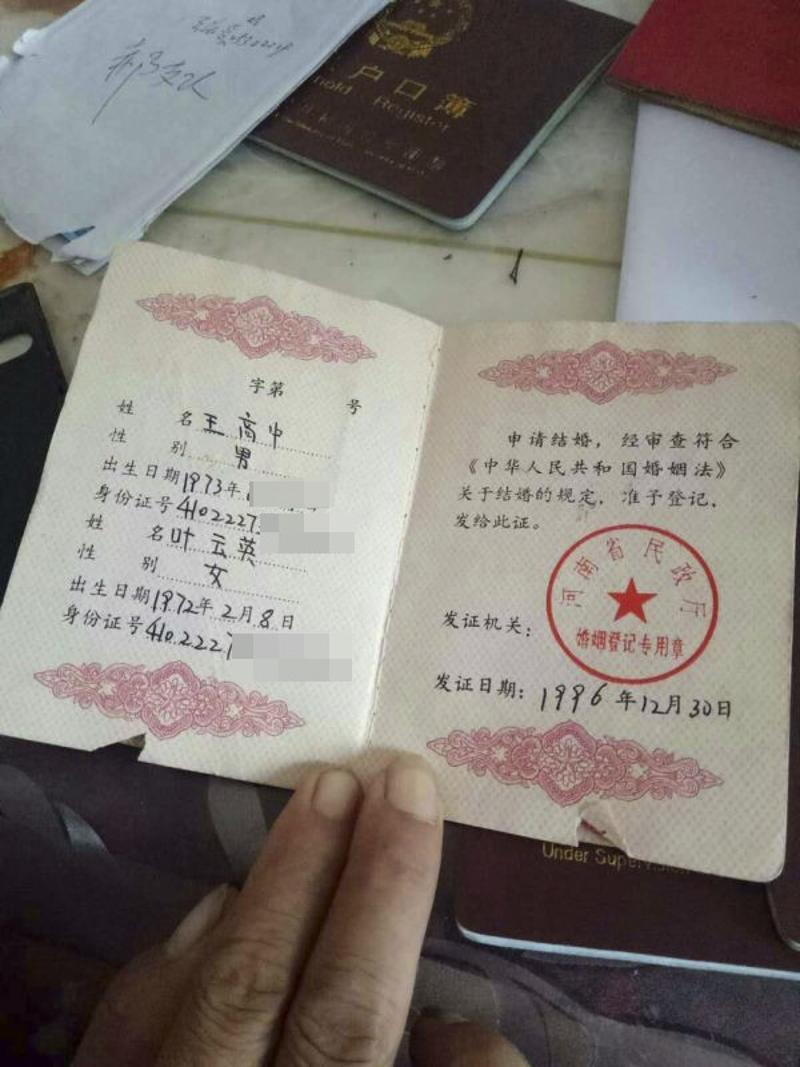 户口簿
Household Register
字第 号
姓 名 王高中
性 别 男
出生日期 1973年
身份证号 4102227
姓 名 叶云英
性 别 女
出生日期 1972年2月8日
身份证号 4102227
申请结婚，经审查符合
《中华人民共和国婚姻法》
关于结婚的规定，准予登记，
发给此证。
河南省民政厅
婚姻登记专用章
发证机关：
发证日期：1996年12月30日
Under Supervision